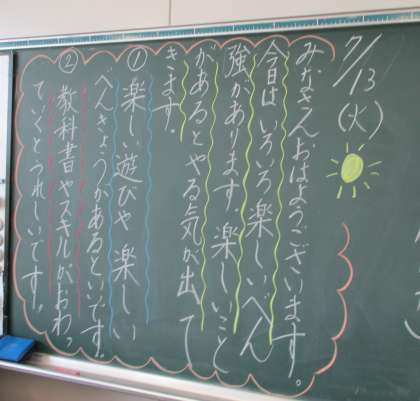 7/13(火)
みなさんおはようございます。
今日は、いろいろ楽しいべん
強があります。楽しいこと
があるとやる気が出て
きます。
① 楽しい遊びや楽しい
べんきょうがあるといいです。
② 教科書やスキルがおわっ
ていくとうれしいです。